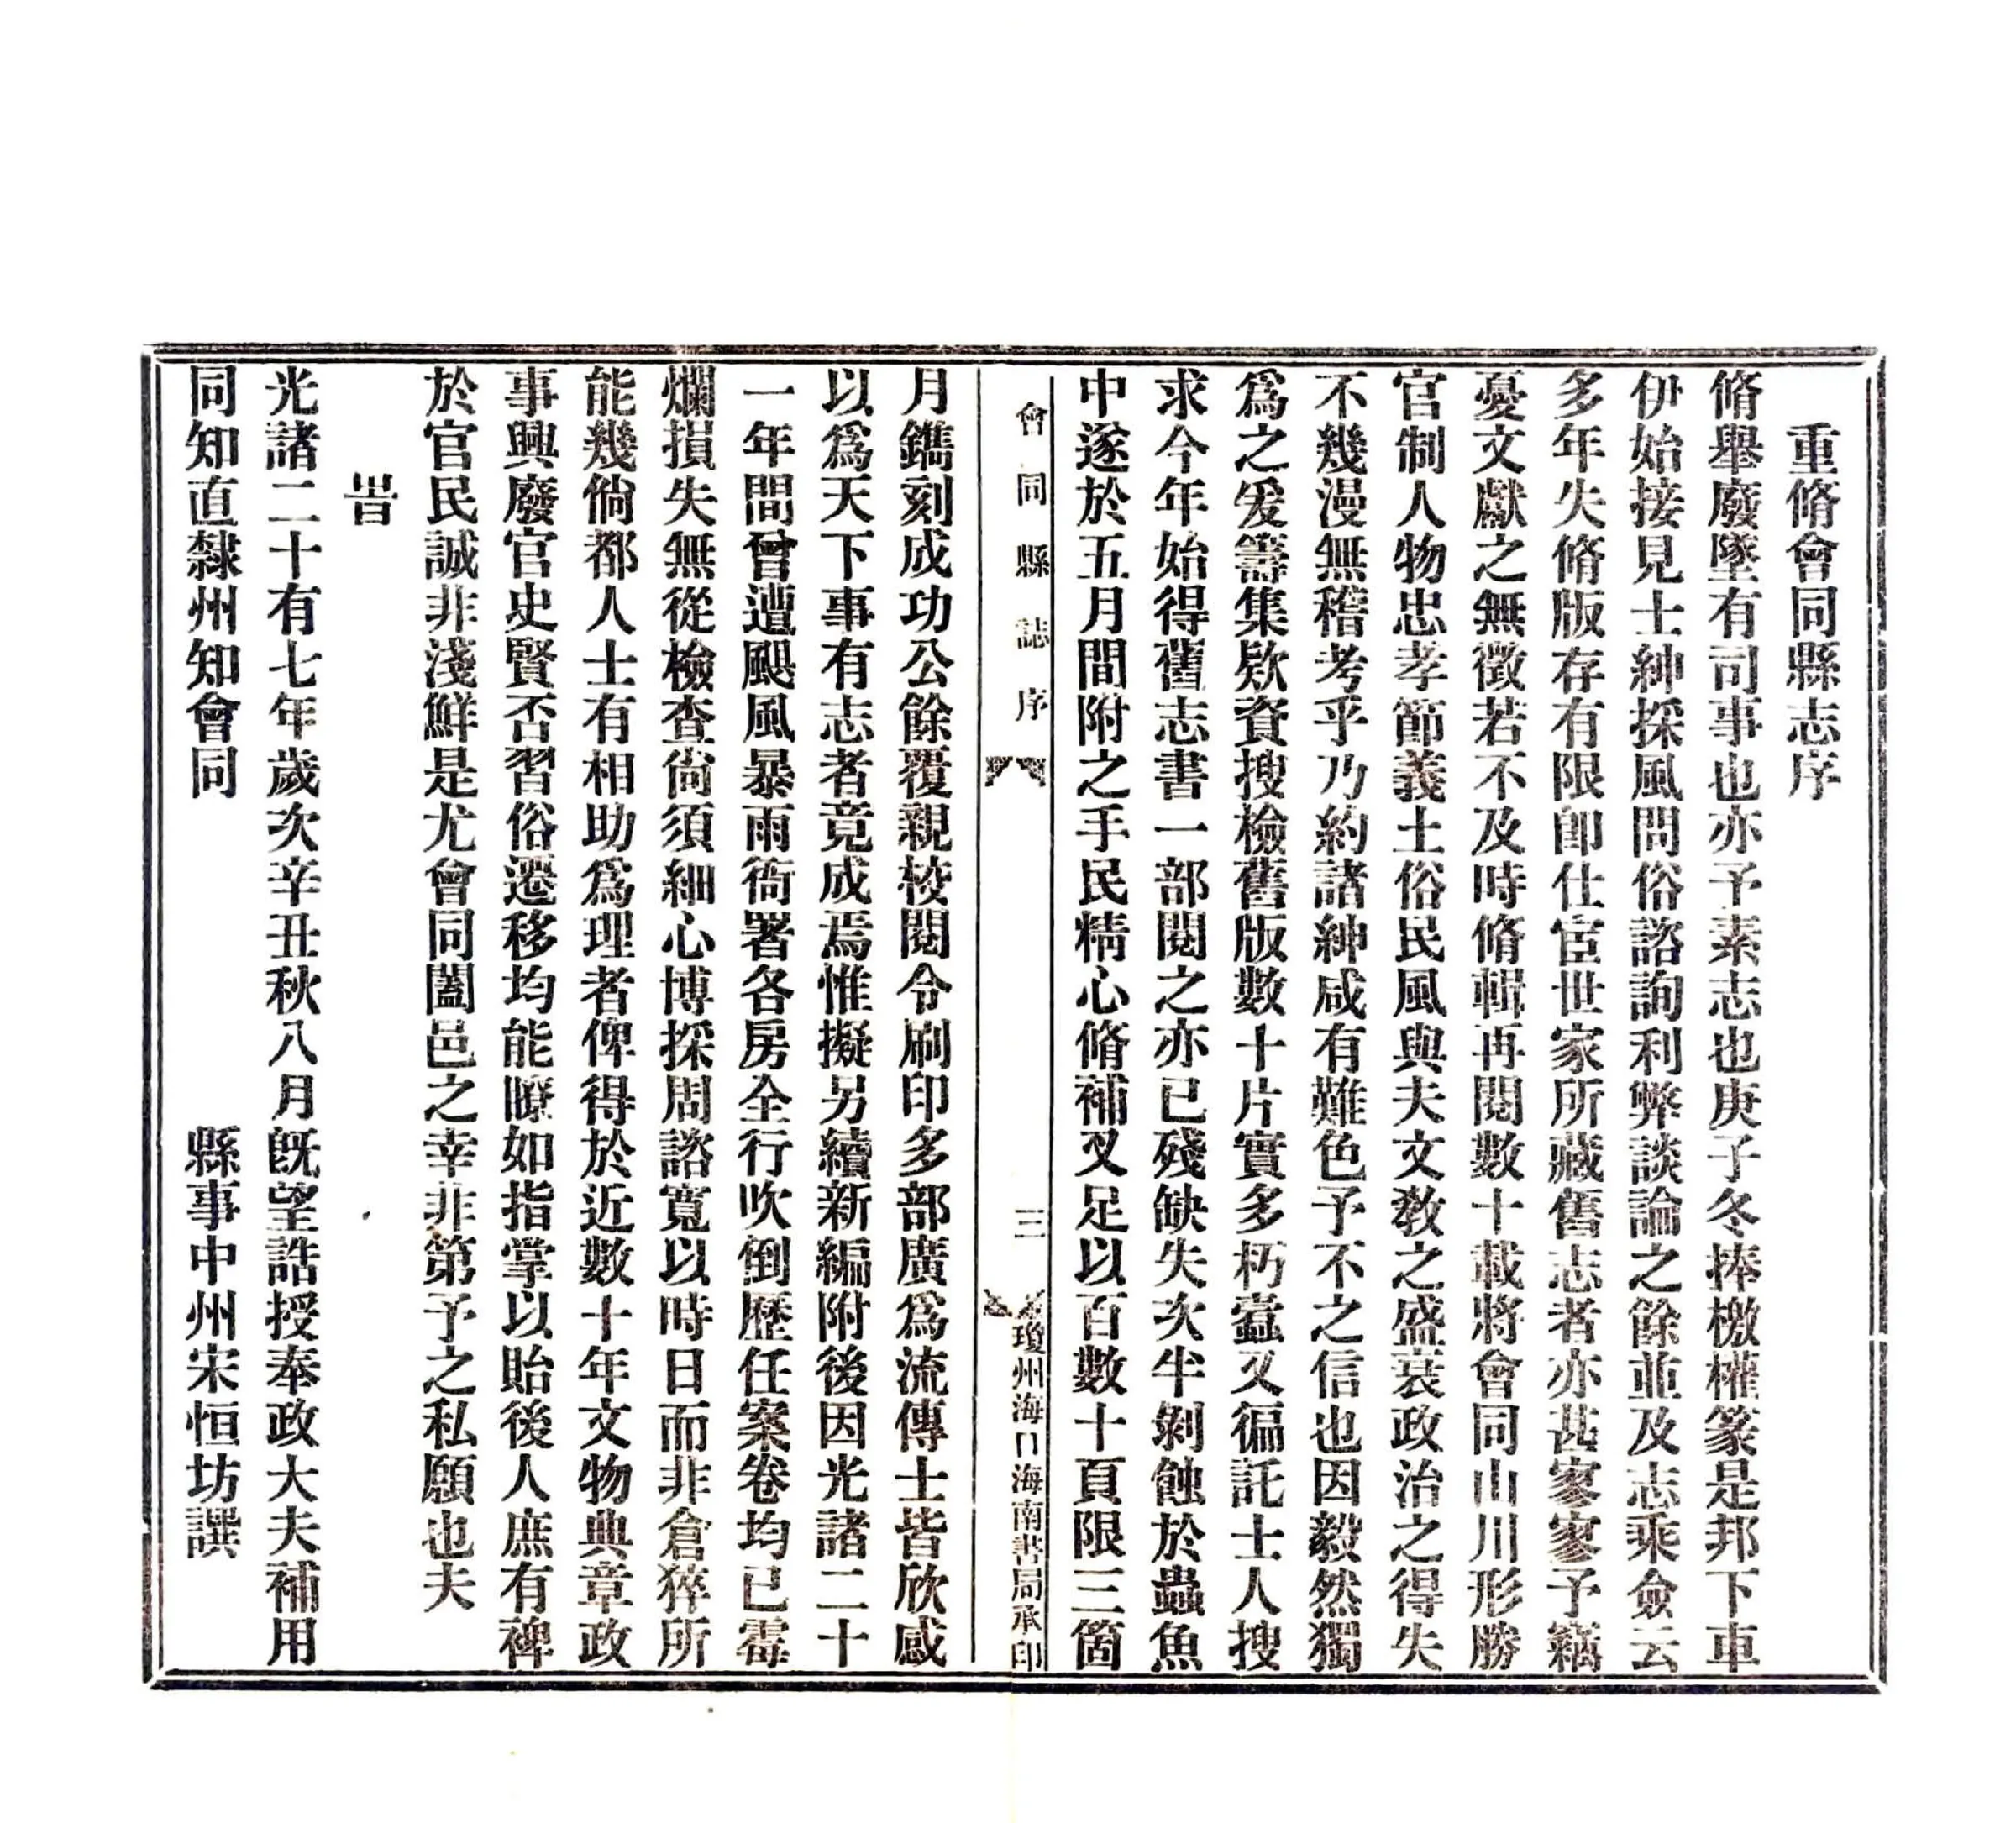 重脩會同縣志序
脩舉廢墜有司事也亦予素志也庚子冬捧檄權篆是邦下車
伊始接見士紳採風問俗諮詢利弊談論之餘並及志乘僉云
多年失脩版存有限卽仕宦世家所藏舊志者亦甚寥寥予竊
憂文獻之無徵若不及時脩輯再閱數十載將會同山川形勝
官制人物忠孝節義土俗民風與夫文敎之盛衰政治之得失
不幾漫無稽考乎乃約諸紳咸有難色予不之信也因毅然獨
爲之爰籌集欵資搜檢舊版數十片實多朽蠹又徧託士人搜
求今年始得舊志書一部閱之亦已殘缺失次半剝蝕於蟲魚
中遂於五月間附之手民精心脩補又足以百數十頁限三箇
會同縣誌序
三
瓊州海口海南書局承印
月鐫刻成功公餘覆親校閱令刷印多部廣爲流傳士皆欣感
以爲天下事有志者竟成焉惟擬另續新編附後因光諸二十
一年間曾遭颶風暴雨衙署各房全行吹倒歷任案卷均已霉
爛損失無從檢查尙須細心博採周諮寬以時日而非倉猝所
能幾倘都人士有相助爲理者俾得於近數十年文物典章政
事興廢官史賢否習俗遷移均能瞭如指掌以貽後人庶有裨
於官民誠非淺鮮是尤會同闔邑之幸非第予之私願也夫
旹
光諸二十有七年歲次辛丑秋八月旣望誥授奉政大夫補用
同知直隸州知會同 縣事中州宋恒坊譔